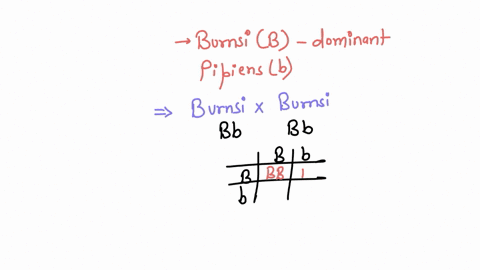 → Burnsi (B) - dominant
Pipiens (b)
⇒ Burnsi x Burnsi
Bb Bb
B b
B BB
b